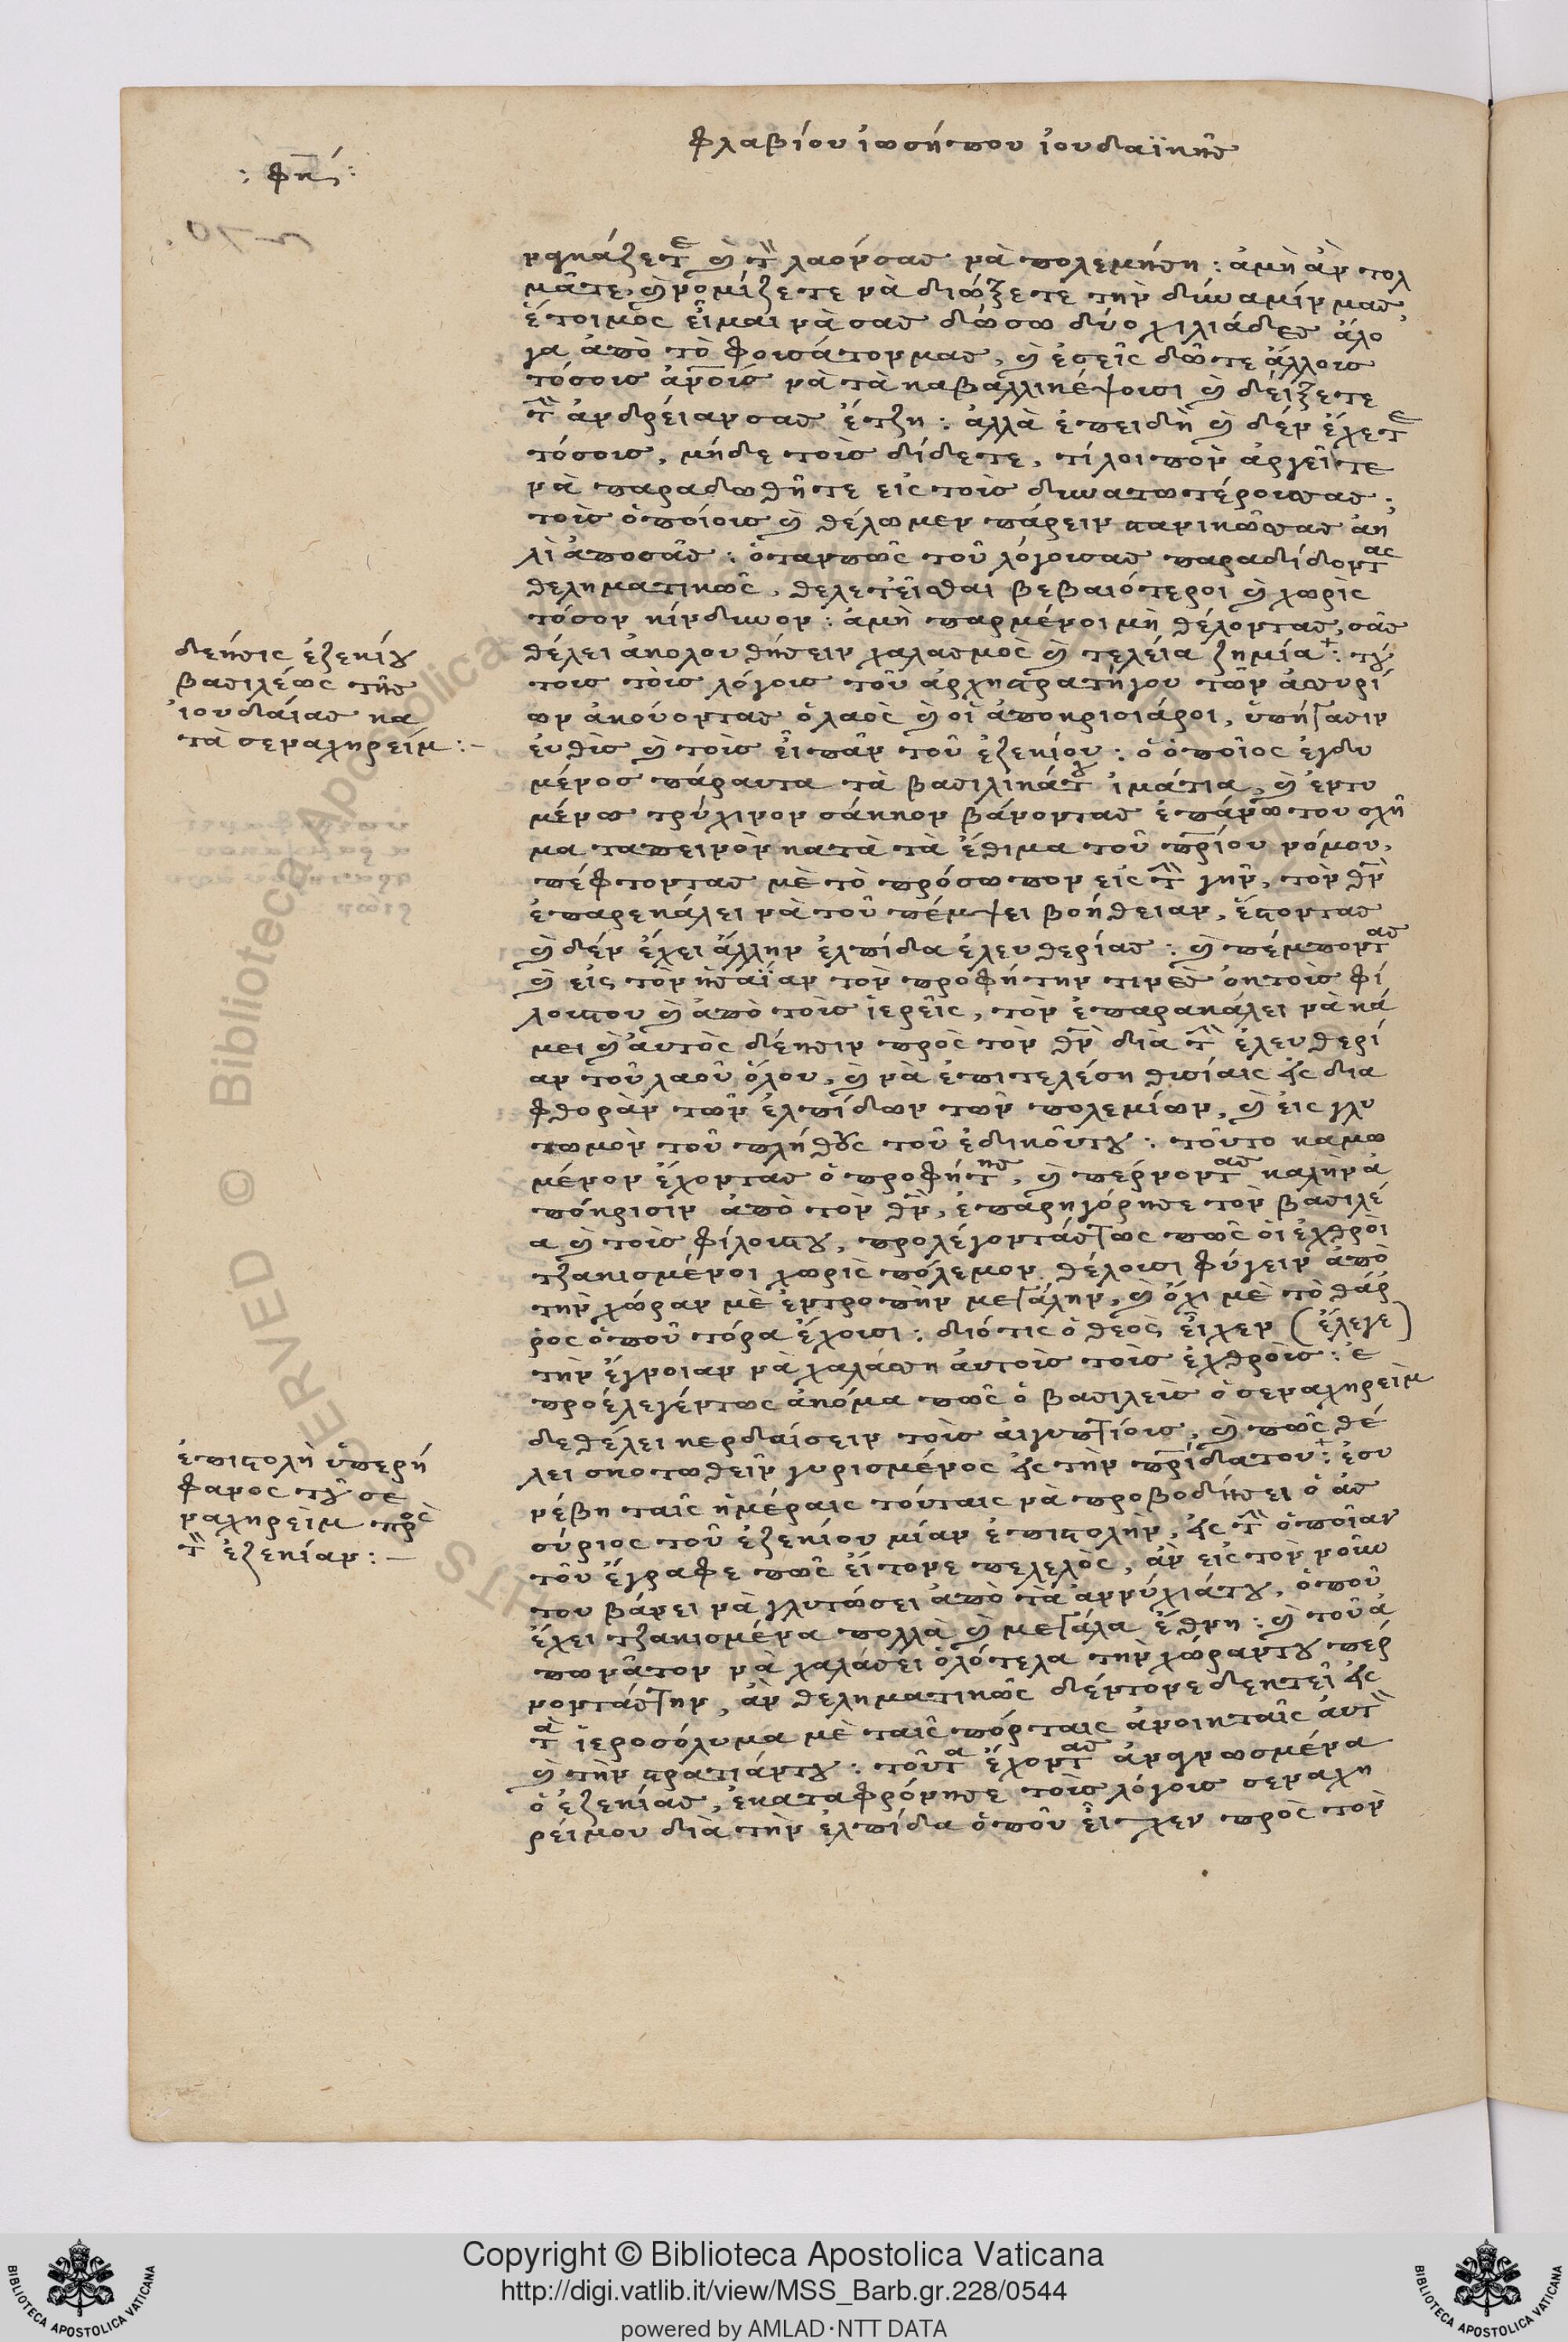 φλαβίου ἰωσήπου ἰουδαϊκῆς
: φκʹ :
ναγκάζετε καὶ τὸν λαόν σας νὰ πολεμήση : ἀμὴ ἂν τολ
μᾶτε, καὶ νομίζετε νὰ διώξετε τὴν δύναμίν μας,
ἕτοιμος εἶμαι νὰ σας δώσω δύο χιλιάδες ἄλο
γα ἀπὸ τὸ φουσάτον μας, καὶ ἐσεῖς δῶτε ἄλλους
τόσους ἀνους νὰ τὰ καβαλλικέψουσι καὶ δείξετε
τὴν ἀνδρείαν σας ἔτζη : ἀλλὰ ἐπειδὴ καὶ δὲν ἔχετε
τόσους, μήδε τοὺς δίδετε, τί λοιπὸν ἀργεῖτε
νὰ παραδωθῆτε εἰς τοὺς δυνατωτέρους σας :
τοὺς ὁποίους καὶ θέλωμεν πάρειν στανικῶς σας ἂν
λιἀποσᾶς : ὅταν πῶς τοῦ λόγου σας παραδίδοντας
θεληματικῶς, θελετεῖσθαι βεβαιότεροι καὶ χωρὶς
τόσον κίνδυνον : ἀμὴ παρμένοι μὴ θέλοντας, σᾶς
θέλει ἀκολουθήσειν χαλασμὸς καὶ τελεία ζημία : τού
τους τοὺς λόγους τοῦ ἀρχηστρατήγου τῶν ἀσσυρί
ων ἀκούοντας ὁ λαὸς καὶ οἱ ἀποκρισιάροι, ὑπήγασιν
εὐθὺς καὶ τοὺς εἶπαν τοῦ ἐζεκίου : ὁ ὁποῖος ἐγδυ
μένος πάραυτα τὰ βασιλικάτου ἱμάτια, καὶ ἐντυ
μένος τρύχινον σάκκον βάνοντας ἐπάνω του σχῆ
μα ταπεινὸν κατὰ τὰ ἔθιμα τοῦ πρίου νόμου,
πέφτοντας μὲ τὸ πρόσωπον εἰς τὴν γῆν, τὸν θν
ἐπαρεκάλει νὰ τοῦ πέμψει βοήθειαν, ἔστοντας
καὶ δὲν ἔχει ἄλλην ἐλπίδα ἐλευθερίας : καὶ πέμποντας
καὶ εἰς τὸν ἡσαΐαν τὸν προφήτην τινὲς ὀκ τοὺς φί
λους του καὶ ἀπὸ τοὺς ἱερεῖς, τὸν ἐπαρακάλει νὰ κά
μει καὶ αὐτὸς δέησιν πρὸς τὸν θν διὰ τὴν ἐλευθερί
αν τοῦ λαοῦ ὅλου, καὶ νὰ ἐπιτελέση θυσίαις εἰς δια
φθορὰν τῶν ἐλπίδων τῶν πολεμίων, καὶ εἰς γλυ
τωμὸν τοῦ πλήθους τοῦ ἐδικοῦντου : τοῦτο καμω
μένον ἔχοντας ὁ προφήτης, καὶ πέρνοντας καλὴν ἀ
πόκρισιν ἀπὸ τὸν θν, ἐπαρηγόρησε τὸν βασιλέ
α καὶ τοὺς φίλους του, προλέγοντάς τως πῶς οἱ ἐχθροὶ
τζακισμένοι χωρὶς πόλεμον θέλουσι φύγειν ἀπὸ
τὴν χώραν μὲ ἐντροπὴν μεγάλην, καὶ ὄχι μὲ τὸ θάρ
ρος ὁποῦ τόρα ἔχουσι : διότις ὁ θεὸς εἶχεν (ἔλεγε)
τὴν ἔγνοιαν νὰ χαλάση αὐτοὺς τοὺς ἐχθροὺς : ἐ
προέλεγέντως ἀκόμα πῶς ὁ βασιλεὺς ὁ σεναχηρεὶμ
δεθέλει κερδαίσειν τοὺς αἰγυπτίους, καὶ πῶς θέ
λει σκοτωθεῖν γυρισμένος εἰς τὴν πρίδατου : ἐσυ
νέβη ταῖς ἡμέραις τούταις νὰ προβοδήσει ὁ ἀσ
σύριος τοῦ ἐζεκίου μίαν ἐπιστολὴν, εἰς τὴν ὁποῖαν
τοῦ ἔγραφε πῶς εἴτονε πελελὸς, ἂν εἰς τὸν νοῦν
του βάνει νὰ γλυτώσει ἀπὸ τὰ ἀννύχιάτου, ὁποῦ
ἔχει τζακισμένα πολλὰ καὶ μεγάλα ἔθνη : καὶ τοῦ ἀ
πωνᾶτον νὰ χαλάσει ὁλότελα τὴν χώραντου πέρ
νοντάς την, ἂν θεληματικῶς δέντονε δεκτεῖ εἰς
τὰ ἱεροσόλυμα μὲ ταῖς πόρταις ἀνοικταῖς αὐτὸν
καὶ τὴν στρατιάντου : τοῦτα ἔχοντας ἀναγνωσμένα
ὁ ἐζεκίας, ἐκαταφρόνησε τοὺς λόγους σεναχη
ρείμου διὰ τὴν ἐλπίδα ὁποῦ εἶχεν πρὸς τὸν
δεήσις ἐζεκίου
βασιλέως τῆς
ἰουδαίας κα
τὰ σεναχηρείμ : –
ἐπιστολὴ ὑπερή
φανος τοῦ σε
ναχηρεὶμ πρὸς
τὸν ἐζεκίαν : –
Biblioteca Apostolica
Copyright © Biblioteca Apostolica Vaticana
http://digi.vatlib.it/view/MSS_Barb.gr.228/0544
powered by AMLAD·NTT DATA
BIBLIOTECA APOSTOLICA VATICANA
BIBLIOTECA APOSTOLICA VATICANA